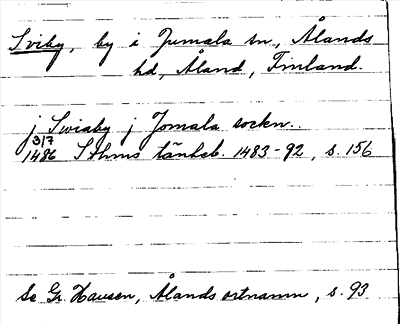 Sviby, by i Jumala sn, Ålands
hd, Åland, Finland.
j Swiaby j Jomala sockn.
3/7
1486 Sthms tänkeb. 1483-92, s. 156
Se Gr. Hausen, Ålands ortnamn, s. 93